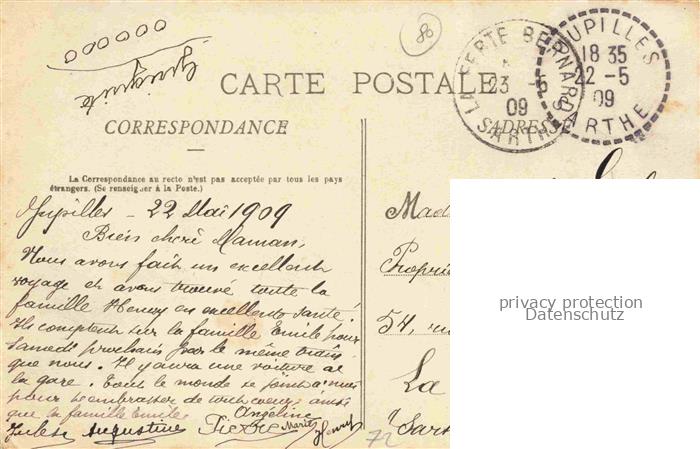 Guiguite
80
CARTE POSTALE
CORRESPONDANCE
ADRESSE
La Correspondance au recto n'est pas acceptée par tous les pays
étrangers. (Se renseigner à la Poste.)
LA FERTE BERNARD
23 -5
09
SARTHE
JUPILLES
18 35
22 -5
09
SARTHE
Jupilles - 22 Mai 1909
Bien chère Maman,
Nous avons fait un excellent
voyage et avons trouvé toute la
famille Henry en excellente santé.
Ils comptent sur la famille Emile pour
samedi prochain par le même train
que nous. Il y aura une voiture à
la gare. Tout le monde se joint à nous
pour t'embrasser de tout coeur ainsi
que la famille Emile.
Angéline
Jules Augustine Pierre Marie Henry
Mad
Proprié
54, ru
La
Sart
72
privacy protection
Datenschutz